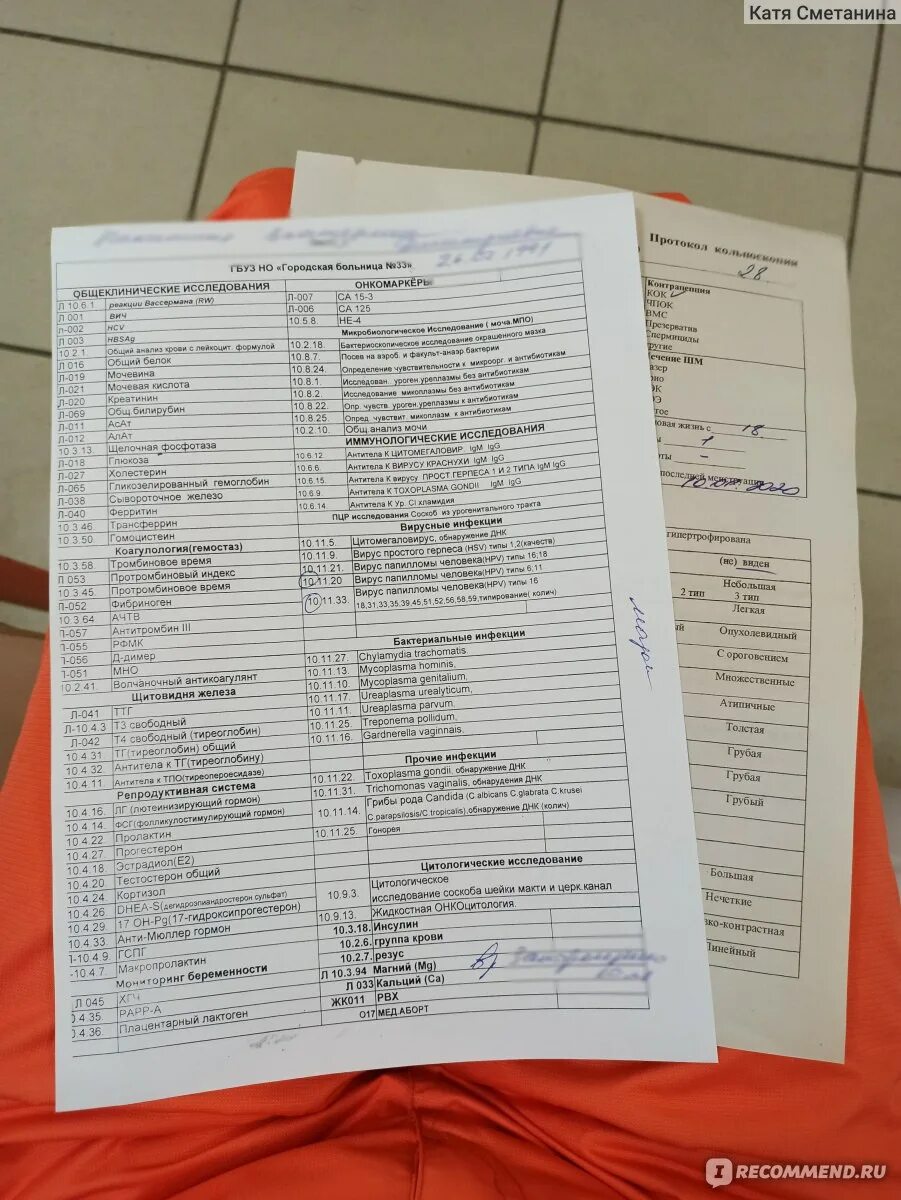 Катя Сметанина
26 1991
ГБУЗ НО «Городская больница №33»
ОБЩЕКЛИНИЧЕСКИЕ ИССЛЕДОВАНИЯ
Л 10.6.1 реакции Вассермана (RW)
Л 001 ВИЧ
Л-002 HCV
Л 003 HBSAg
10.2.1. Общий анализ крови с лейкоцит. формулой
Л 016 Общий белок
Л-019 Мочевина
Л-021 Мочевая кислота
Л-020 Креатинин
Л-069 Общ.билирубин
Л-011 АсАт
Л-012 АлАт
10.3.13. Щелочная фосфотаза
Л-018 Глюкоза
Л-027 Холестерин
Л-065 Гликозелированный гемоглобин
Л-038 Сывороточное железо
Л-040 Ферритин
10.3.46. Трансферрин
10 3.50 Гомоцистеин
Коагулология(гемостаз)
10 3 58 Тромбиновое время
Л 053 Протромбиновый индекс
10.3.45. Протромбиновое время
П-052 Фибриноген
10.3 64 АЧТВ
Л-057 Антитромбин III
П-055 РФМК
П-056 Д-димер
П-051 МНО
0.2.41. Волчаночный антикоагулянт
Щитовидня железа
Л-041 ТТГ
Л-10.4.3 Т3 свободный
Л-042 Т4 свободный (тиреоглобин)
10.4.31. ТГ(тиреоглобин) общий
10.4.32. Антитела к ТГ(тиреоглобину)
10.4.11. Антитела к ТПО(тиреопероесидазе)
Репродуктивная система
10.4.16. ЛГ (лютеинизирующий гормон)
10.4.14. ФСГ(фолликулостимулирующий гормон)
10.4.22 Пролактин
10.4.27 Прогестерон
10.4.18. Эстрадиол(Е2)
10.4.20. Тестостерон общий
10.4.24. Кортизол
10.4.26. DHEA-S(дегидроэпиандростерон сульфат)
10.4.29. 17 ОН-Pg(17-гидроксипрогестерон)
10.4.33. Анти-Мюллер гормон
Л-10.4.9. ГСПГ
10.4.7. Макропролактин
Мониторинг беременности
Л 045 ХГЧ
0.4.35. РАРР-А
0.4.36. Плацентарный лактоген
ОНКОМАРКЕРЫ
Л-007 СА 15-3
Л-006 СА 125
10.5.8. НЕ-4
Микробиологическое Исследование ( моча.МПО)
10.2.18. Бактериоскопическое исследование окрашенного мазка
10.8.7. Посев на аэроб. и факульт-анаэр бактерии
10.8.24. Определение чувствительности к микроорг. и антибиотикам
10.8.1. Исследован. уроген.уреплазмы без антибиотикам
10.8.2. Исследование микоплазмы без антибиотикам
10.8.22. Опр. чувств. уроген.уреплазмы к антибиотикам
10.8.25. Опред. чувствит. микоплазм к антибиотикам
10.2.10. Общ.анализ мочи
ИММУНОЛОГИЧЕСКИЕ ИССЛЕДОВАНИЯ
10.6.12. Антитела К ЦИТОМЕГАЛОВИР. IgM IgG
10.6.6. Антитела К ВИРУСУ КРАСНУХИ IgM IgG
10.6.15. Антитела К вирусу ПРОСТ.ГЕРПЕСА 1 И 2 ТИПА IgM IgG
10.6.9. Антитела К TOXOPLASMA GONDII IgM IgG
10.6.14. Антитела К Ур. Cl хламидия
ПЦР исследования Соскоб из урогенитального тракта
Вирусные инфекции
10.11.5. Цитомегаловирус, обнаружение ДНК
10.11.9. Вирус простого герпеса (HSV) типы 1,2(качеств)
10.11.21. Вирус папилломы человека(HPV) типы 16;18
10.11.20 Вирус папилломы человека(HPV) типы 6;11
10.11.33. Вирус папилломы человека(HPV) типы 16
18,31,33,35,39,45,51,52,56,58,59,типирование( колич)
Бактериальные инфекции
10.11.27. Chylamydia trachomatis.
10.11.13. Mycoplasma hominis,
10.11.10. Mycoplasma genitalium,
10.11.17. Ureaplasma urealyticum,
10.11.11. Ureaplasma parvum,
10.11.25. Treponema pollidum,
10.11.16. Gardnerella vaginnais.
Прочие инфекции
10.11.22. Toxoplasma gondii, обнаружение ДНК
10.11.31. Trichomonas vaginalis, обнарудения ДНК
10.11.14. Грибы рода Candida (C.albicans C.glabrata C.krusei
C.parapsilosis/C tropicalis),обнаружение ДНК (колич)
10.11.25. Гонорея
Цитологические исследование
10.9.3. Цитологическое
исследование соскоба шейки макти и церк.канал
10.9.13. Жидкостная ОНКОцитология.
10.3.18. Инсулин
10.2.6. группа крови
10.2.7. резус
Л 10.3.94 Магний (Mg)
Л 033 Кальций (Ca)
ЖК011 РВХ
О17 МЕД.АБОРТ
Протокол кольпоскопии
28
Контрацепция
КОК
ЧПОК
ВМС
Презерватив
Спермициды
ругие
ечение ШМ
азер
рио
ЭК
ЭЭ
гое
овая жизнь с 18
ы 1
рты –
последней менструации
2020
гипертрофирована
(не) виден
Небольшая
2 тип 3 тип
Легкая
ый Опухолевидный
С ороговением
Множественные
Атипичные
Толстая
Грубая
Грубая
Грубый
Большая
Нечеткие
ко-контрастная
Линейный
IRECOMMEND.RU